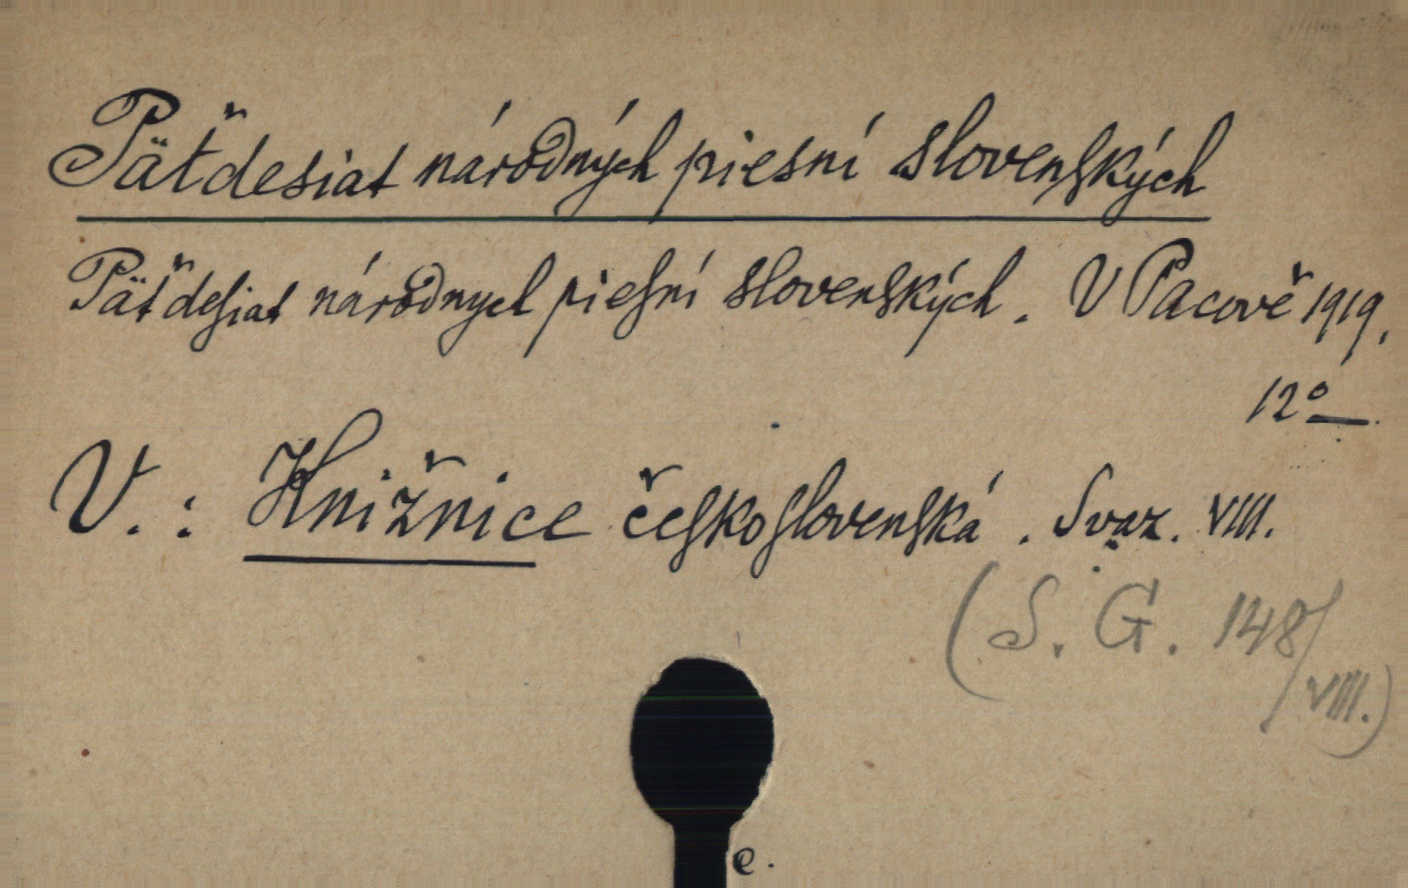 Päťdesiat národných piesní slovenských
Päťdesiat národnych piesní slovenských. V Pacově 1919.
12°
V.: Knižnice československá. Svaz. VIII.
(S. G. 148/VIII.)
e.